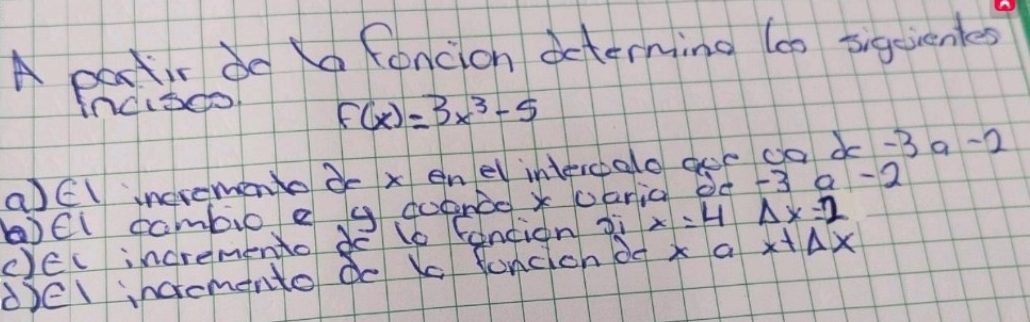 A partir de la foncion determina los siguientes
incisos.
f(x)=3x³-5
a) El incremento de x en el intervalo que va de -3 a -2
b) El cambio e y cuando x varia de -3 a -2
c) El incremento de la foncion si x=4 Δx=2
d) El incremento de la foncion de x a x+Δx